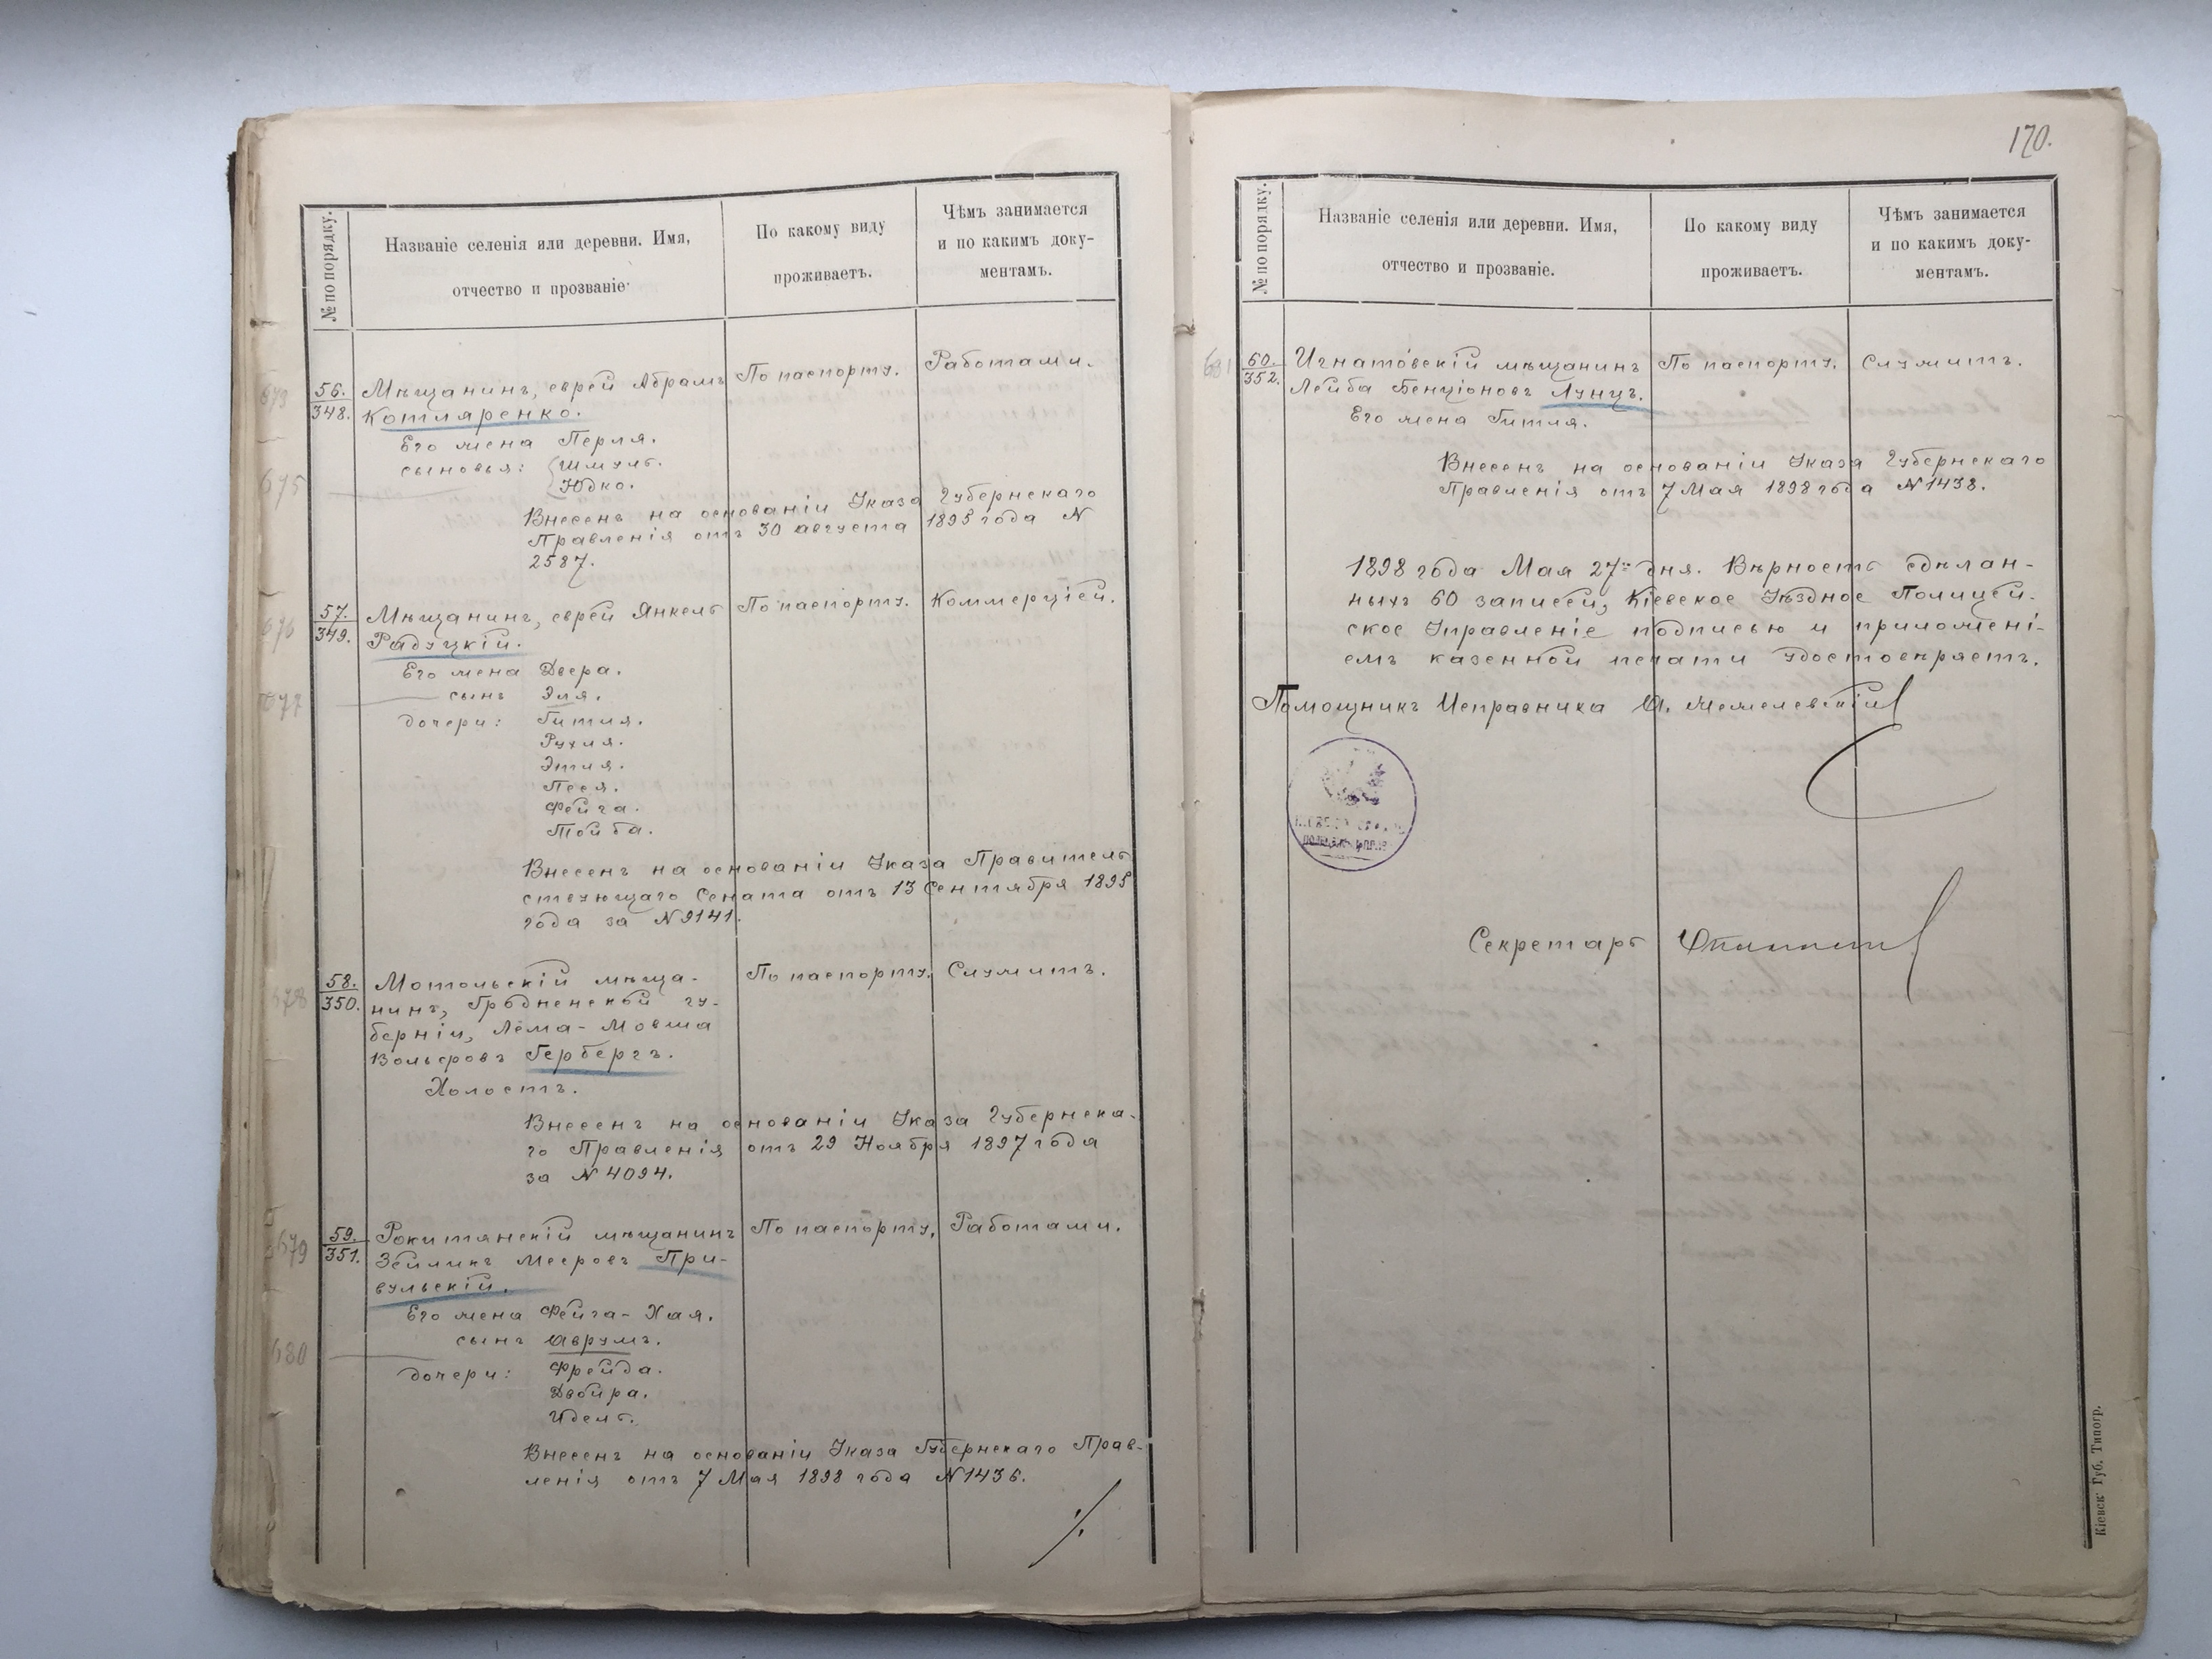 № по порядку.
Названіе селенія или деревни. Имя,
отчество и прозваніе
По какому виду
проживаетъ.
Чѣмъ занимается
и по какимъ доку-
ментамъ.
673
56.
348.
Мѣщанинъ, еврей Абрамъ
Котляренко.
По паспорту.
Работами.
Его жена Перля.
675
сыновья: Шмуль.
Юдко.
Внесенъ на основаніи Указа Губернскаго
Правленія отъ 30 августа 1895 года N
2587.
676
57.
349.
Мѣщанинъ, еврей Янкель
Радуцкій.
По паспорту.
Коммерціей.
Его жена Двера.
677
сынъ Эля.
дочери: Гитля.
Рухля.
Этля.
Песя.
Фейга.
Тойба.
Внесенъ на основаніи Указа Правитель
ствующаго Сената отъ 13 Сентября 1895
года за N 9141.
678
58.
350.
Мотольскій мѣща-
нинъ, Гродненской гу-
берніи, Лема-Мовша
Вольфовъ Гербергъ.
По паспорту.
Служитъ.
Холостъ.
Внесенъ на основаніи Указа Губернска-
го Правленія отъ 29 Ноября 1897 года
за N 4094.
679
59.
351.
Рокитянскій мѣщанинъ
Зейликъ Мееровъ При-
вульскій.
По паспорту.
Работами.
Его жена Фейга-Хая.
680
сынъ Аврумъ.
дочери: Фрейда.
Двойра.
Идель.
Внесенъ на основаніи Указа Губернскаго Прав-
ленія отъ 7 Мая 1898 года N 1436.
170.
№ по порядку.
Названіе селенія или деревни. Имя,
отчество и прозваніе.
По какому виду
проживаетъ.
Чѣмъ занимается
и по какимъ доку-
ментамъ.
681
60.
352.
Игнатовскій мѣщанинъ
Лейба Бенціоновъ Лунцъ.
По паспорту.
Служитъ.
Его жена Гитля.
Внесенъ на основаніи Указа Губернскаго
Правленія отъ 7 Мая 1898 года N 1438.
1898 года Мая 27 дня. Вѣрность сдѣлан-
ныхъ 60 записей, Кіевское Уѣздное Полицей-
ское Управленіе подписью и приложені-
емъ казенной печати удостовѣряетъ.
Помощникъ Исправника
Секретарь
Кіевск. Губ. Типогр.